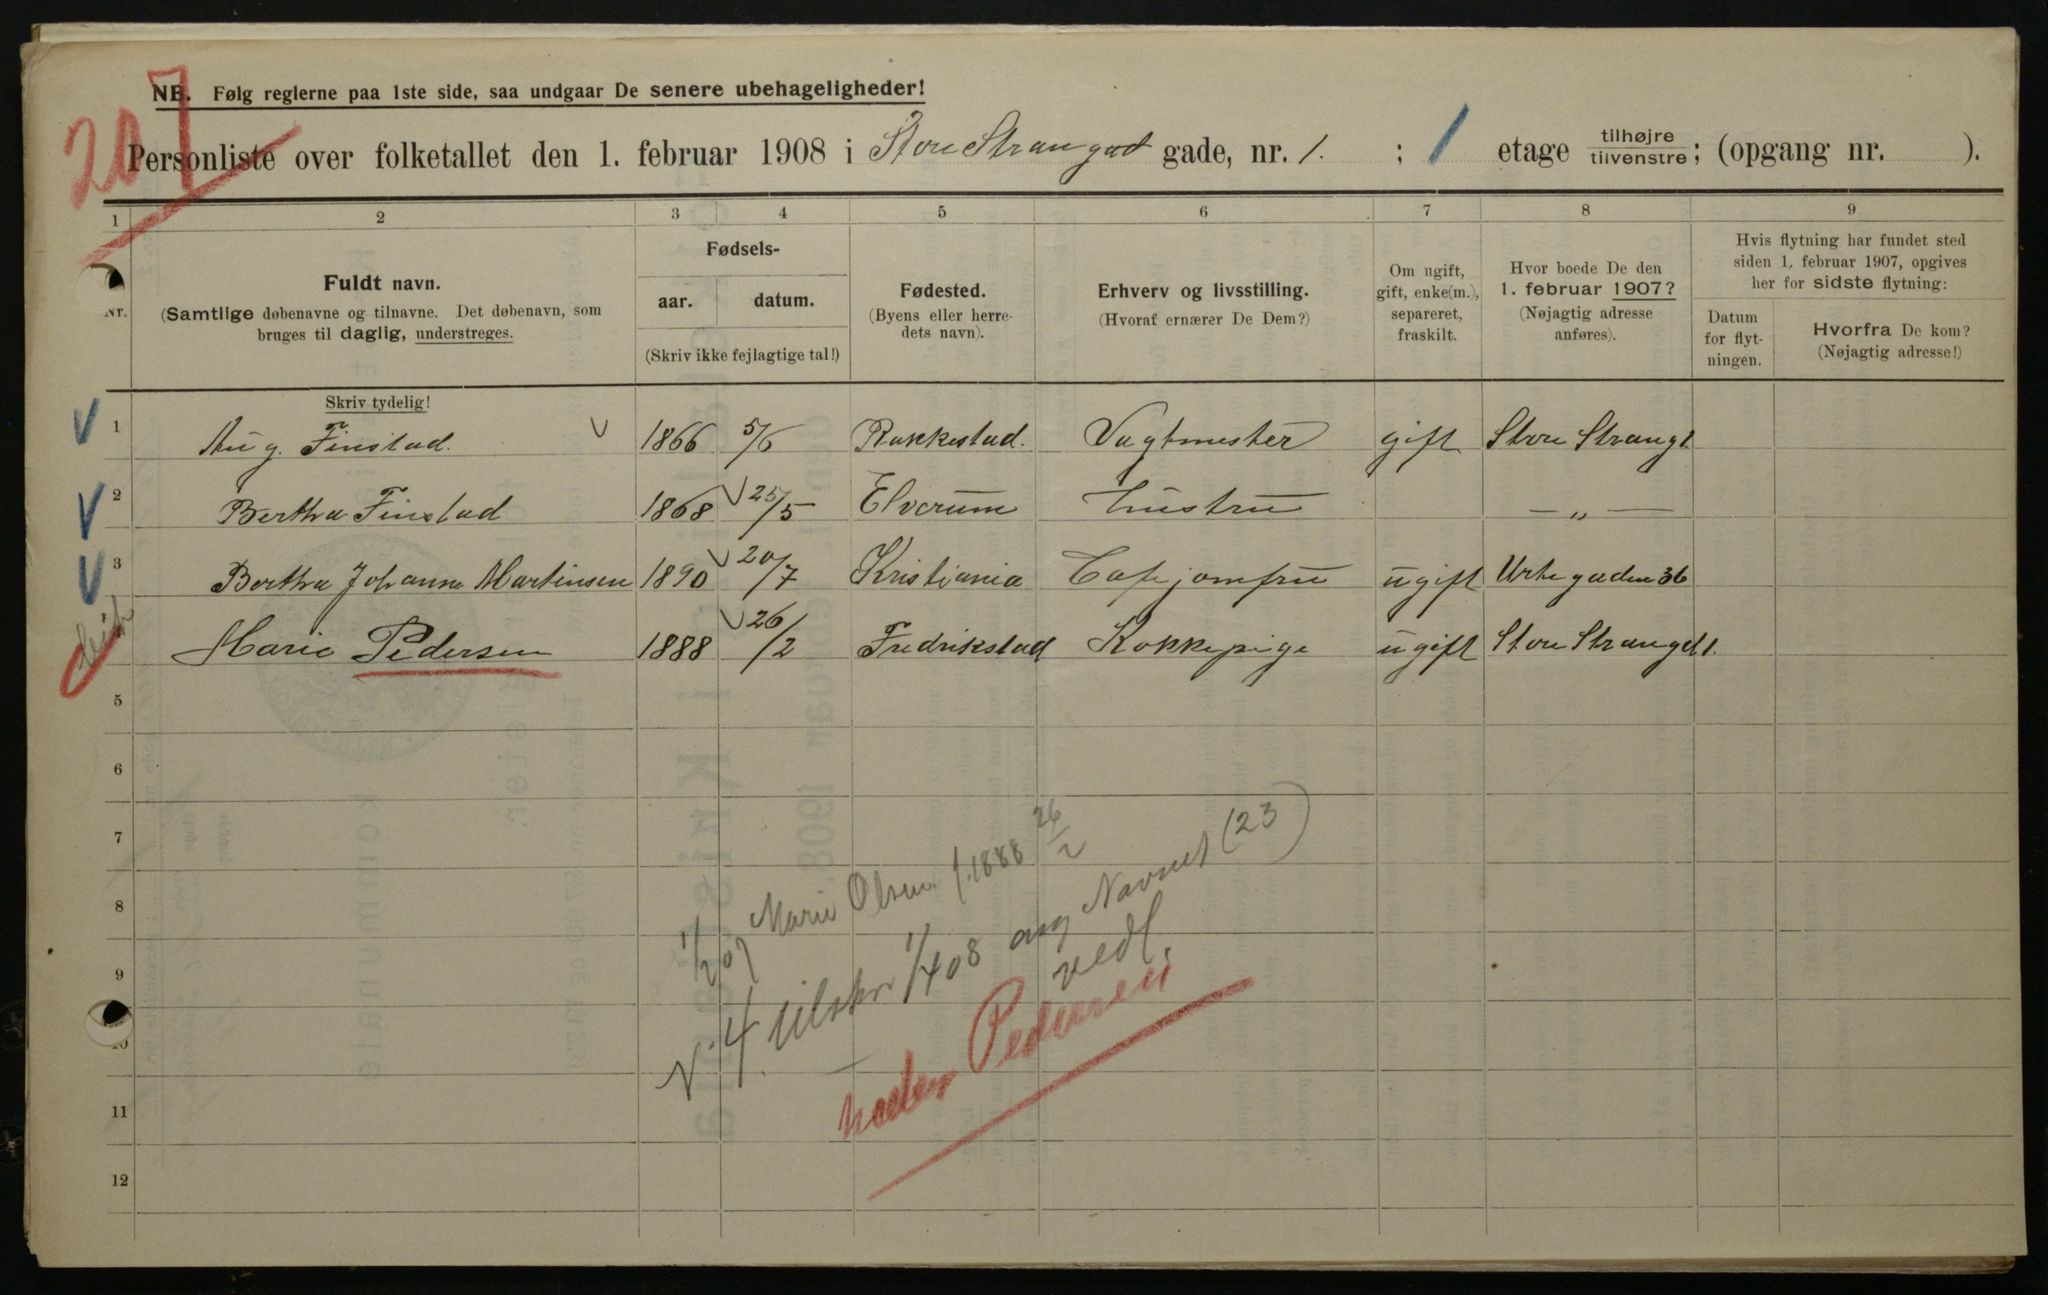 207
NB. Følg reglerne paa 1ste side, saa undgaar De senere ubehageligheder!
Personliste over folketallet den 1. februar 1908 i Store Strangad gade, nr. 1. ; 1 etage tilhøjre/tilvenstre; (opgang nr. ).
1 2 3 4 5 6 7 8 9
Nr.
Fuldt navn.
(Samtlige døbenavne og tilnavne. Det døbenavn, som
bruges til daglig, understreges.
Fødsels-
aar. datum.
(Skriv ikke fejlagtige tal!)
Fødested.
(Byens eller herre-
dets navn).
Erhverv og livsstilling.
(Hvoraf ernærer De Dem?)
Om ugift,
gift, enke(m.),
separeret,
fraskilt.
Hvor boede De den
1. februar 1907?
(Nøjagtig adresse
anføres).
Hvis flytning har fundet sted
siden 1. februar 1907, opgives
her for sidste flytning:
Datum
for flyt-
ningen.
Hvorfra De kom?
(Nøjagtig adresse!)
Skriv tydelig!
1 Aug. Finstad. 1866 5/6 Rakkestad. Vagtmester gift Store Strangt
2 Bertha Finstad 1868 25/5 Elverum Hustru — „ —
3 Bertha Johanne Martinsen 1890 20/7 Kristiania Cafejomfru ugift Urtegaden 36
Marie Pedersen 1888 26/2 Fredrikstad Kokkepige ugift Store Strangd 1.
5
6
7
8
9
10
11
12
1/2 07 Marie Olsen f. 1888 26/2
N. 4. tilskr 1/4 08 ang Navnet (23)
vedl.
heder Pedersen